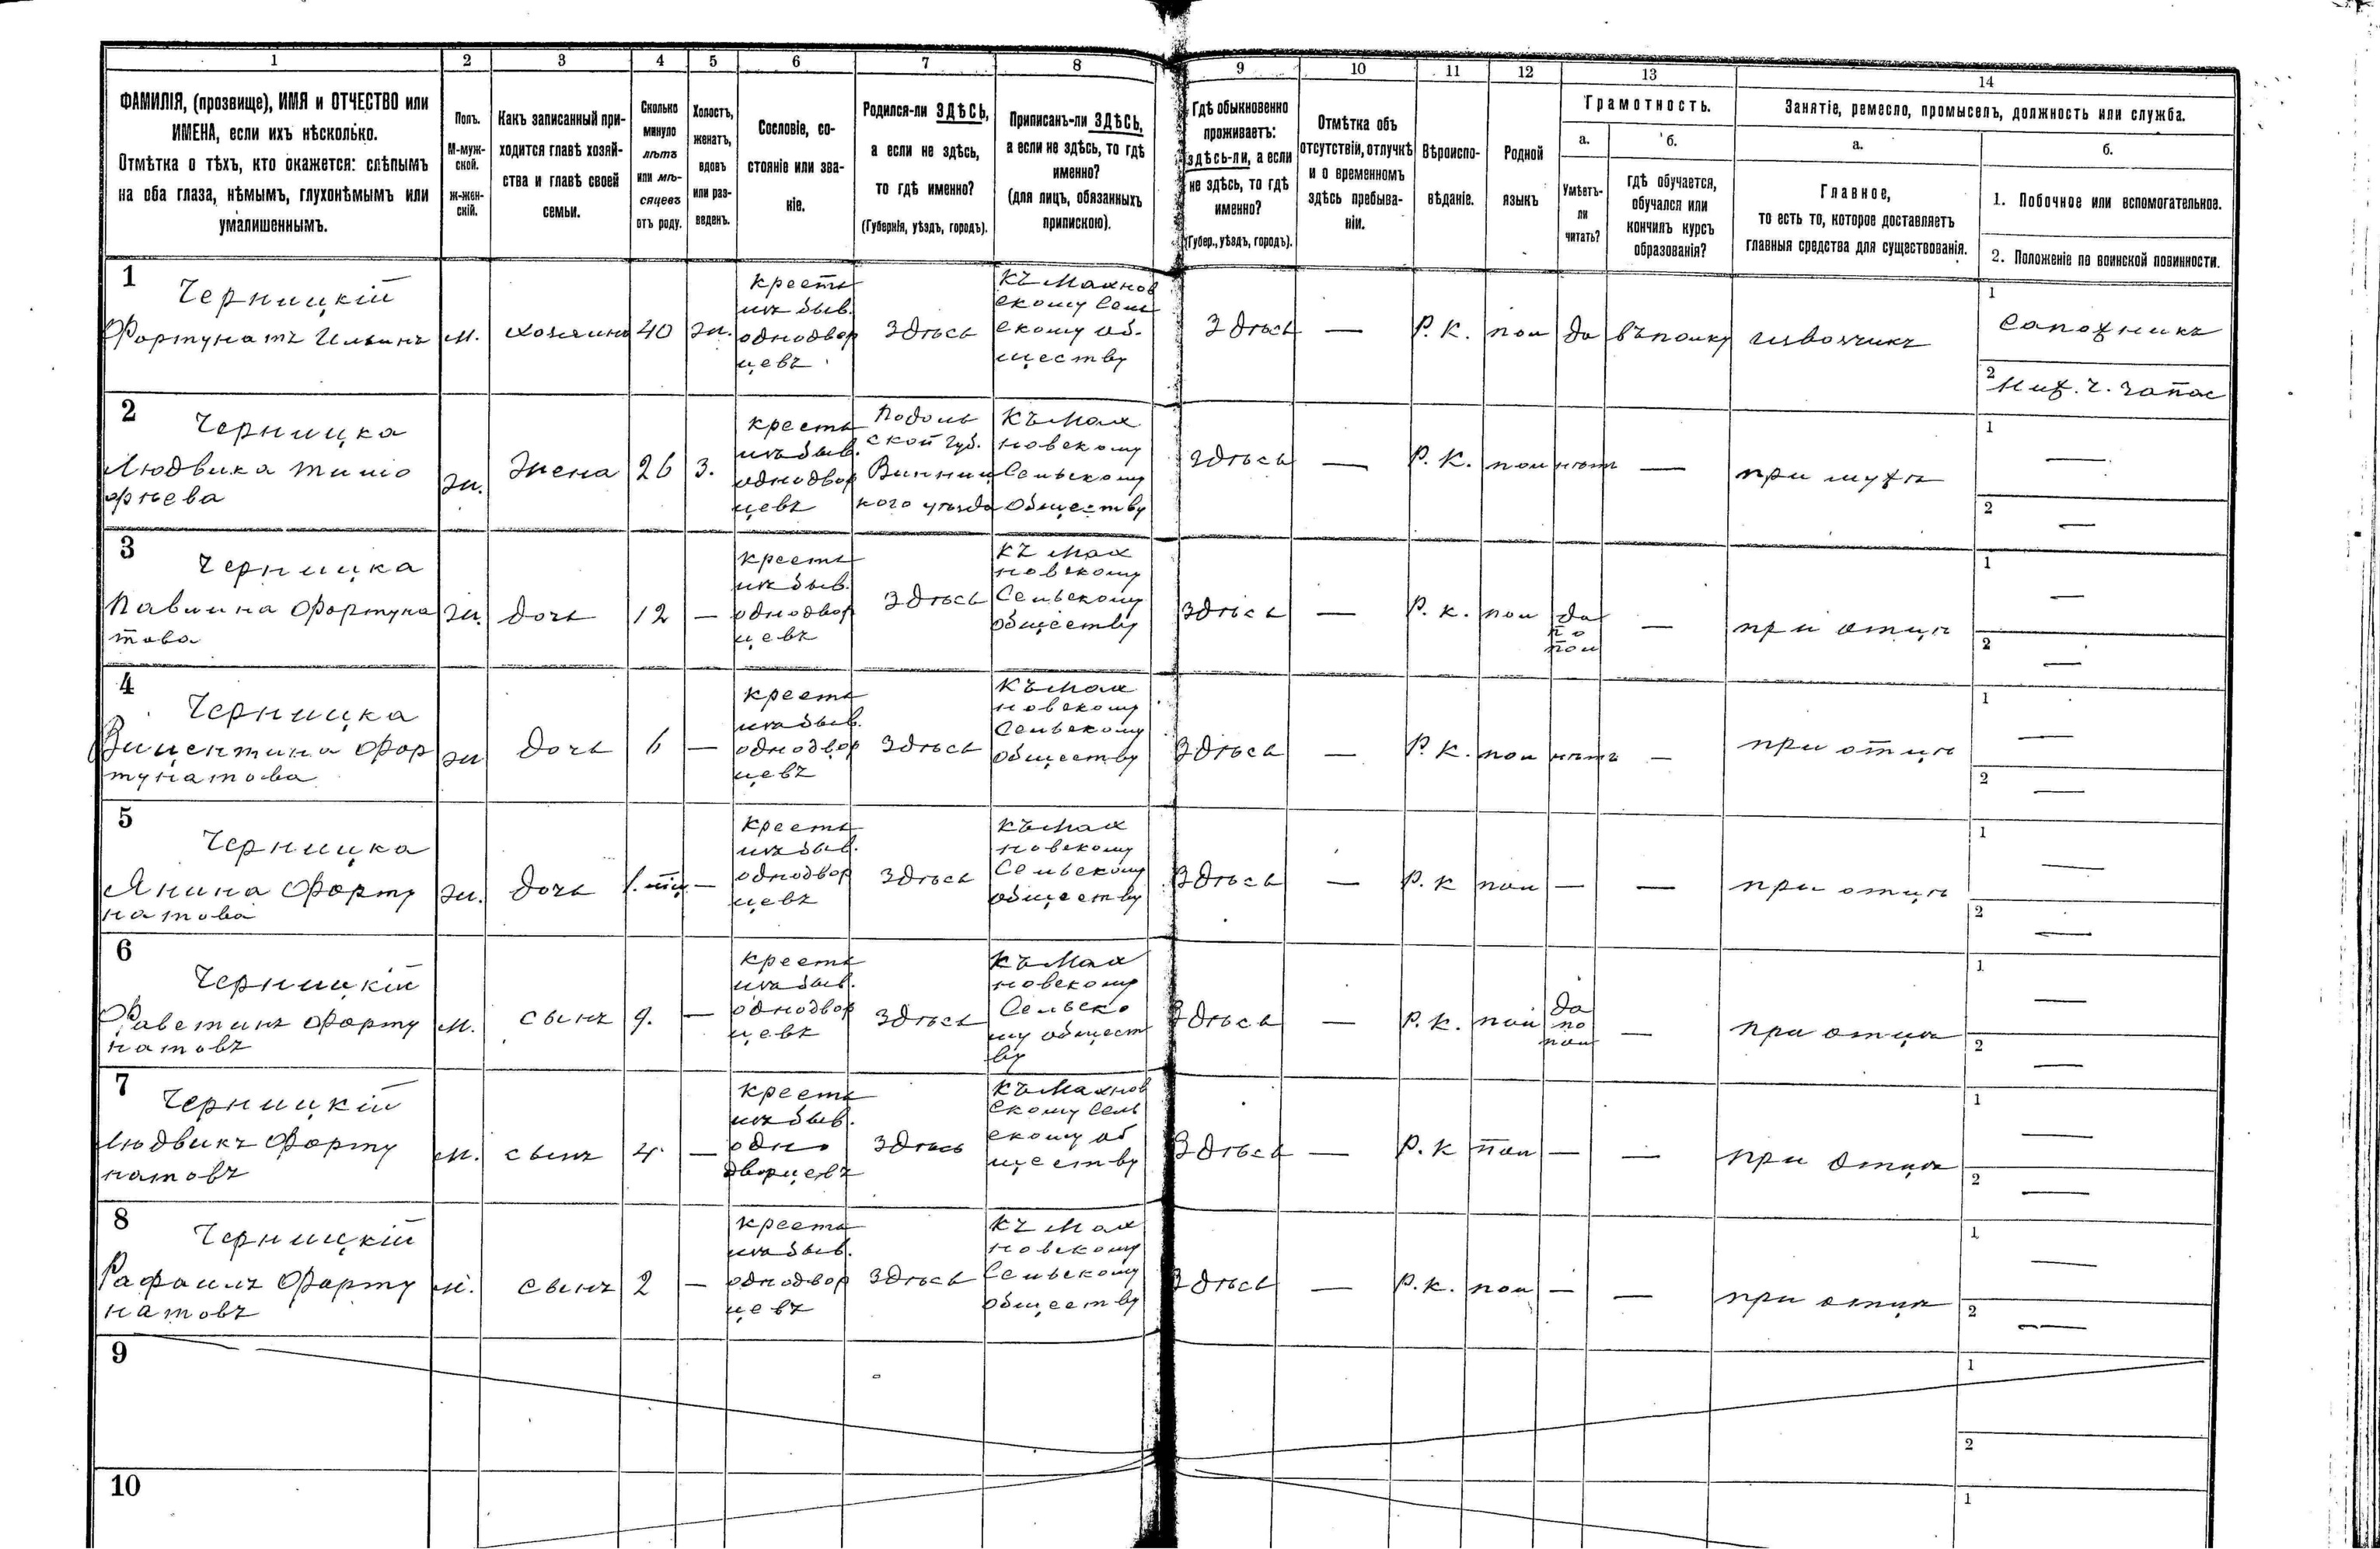 1 2 3 4 5 6 7 8 9 10 11 12 13 14
ФАМИЛІЯ, (прозвище), ИМЯ и ОТЧЕСТВО или
ИМЕНА, если ихъ нѣсколько.
Отмѣтка о тѣхъ, кто окажется: слѣпымъ
на оба глаза, нѣмымъ, глухонѣмымъ или
умалишеннымъ.
Полъ.
М-муж-
ской.
ж-жен-
скій.
Какъ записанный при-
ходится главѣ хозяй-
ства и главѣ своей
семьи.
Сколько
минуло
лѣтъ
или мѣ-
сяцевъ
отъ роду.
Холостъ,
женатъ,
вдовъ
или раз-
веденъ.
Сословіе, со-
стояніе или зва-
ніе.
Родился-ли ЗДѢСЬ,
а если не здѣсь,
то гдѣ именно?
(Губернія, уѣздъ, городъ).
Приписанъ-ли ЗДѢСЬ,
а если не здѣсь, то гдѣ
именно?
(для лицъ, обязанныхъ
припискою).
Гдѣ обыкновенно
проживаетъ:
здѣсь-ли, а если
не здѣсь, то гдѣ
именно?
(Губер., уѣздъ, городъ).
Отмѣтка объ
отсутствіи, отлучкѣ
и о временномъ
здѣсь пребыва-
ніи.
Вѣроиспо-
вѣданіе.
Родной
языкъ
Грамотность.
а.
Умѣетъ-
ли
читать?
б.
гдѣ обучается,
обучался или
кончилъ курсъ
образованія?
Занятіе, ремесло, промыселъ, должность или служба.
а.
Главное,
то есть то, которое доставляетъ
главныя средства для существованія.
б.
1. Побочное или вспомогательное.
2. Положеніе по воинской повинности.
1
Черницкій
Фортунатъ Ильинъ
м.
хозяинъ
40
ж.
кресть
изъ быв.
однодвор
цевъ
Здѣсь
Къ Махнов
скому Сель
скому об.
ществу
Здѣсь
—
Р. К.
пол
да
въ полку
извозчикъ
1
Сапожникъ
2
Ниж. ч. запас
2
Черницка
Людвика Тимо
фѣева
ж.
Жена
26
з.
кресть
изъ быв.
однодвор
цевъ
Подоль
ской губ.
Винниц
кого уѣзда
Къ Мах
новскому
Сельскому
Обществу
здѣсь
—
Р. К.
пол
нѣтъ
—
при мужѣ
1
—
2
—
3
Черницка
Павлина Фортуна
това
ж.
дочь
12
—
кресть
изъ быв.
однодвор
цевъ
Здѣсь
Къ Мах
новскому
Сельскому
обществу
Здѣсь
—
Р. К.
пол
да
по
пол
—
при отцѣ
1
—
2
—
4
Черницка
Вицентина Фор
тунатова
ж
дочь
6
—
кресть
изъ быв.
однодвор
цевъ
Здѣсь
Къ Мах
новскому
Сельскому
обществу
Здѣсь
—
Р. К.
пол
нѣтъ
—
при отцѣ
1
—
2
—
5
Черницка
Янина Форту
натова
ж.
дочь
—
кресть
изъ быв.
однодвор
цевъ
Здѣсь
Къ Мах
новскому
Сельскому
обществу
Здѣсь
—
Р. К
пол
—
—
при отцѣ
1
—
2
—
6
Черницкій
Форту
натовъ
м.
сынъ
9.
—
кресть
изъ быв.
однодвор
цевъ
Здѣсь
Къ Мах
новскому
Сельско
му общест
ву
Здѣсь
—
Р. К.
пол
да
по
пол
—
при отцѣ
1
—
2
—
7
Черницкій
Людвикъ Форту
натовъ
м.
сынъ
4
—
кресть
изъ быв.
одно
дворцевъ
Здѣсь
Къ Махнов
скому Сель
скому об
ществу
Здѣсь
—
Р. К
пол
—
—
при Отцѣ
1
—
2
—
8
Черницкій
Рафаилъ Форту
натовъ
м.
сынъ
2
—
кресть
изъ быв.
однодвор
цевъ
Здѣсь
Къ Мах
новскому
Сельскому
обществу
Здѣсь
—
Р. К.
пол
—
—
при отцѣ
1
—
2
—
9
1
2
10
1